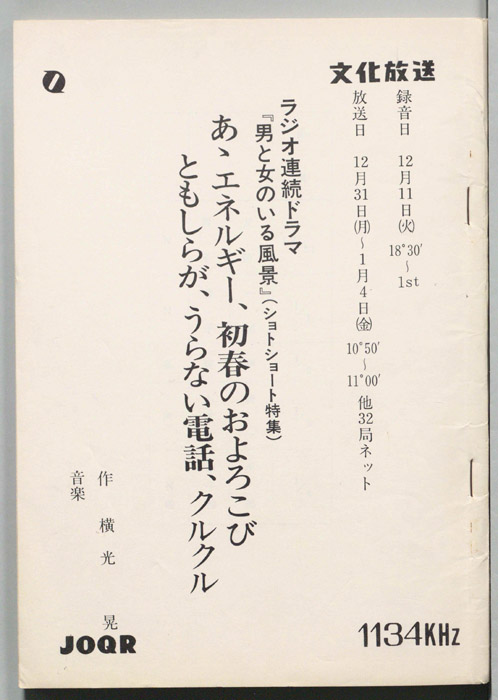 文化放送
録音日 12月11日(火) 18°30′～1st
放送日 12月31日(月)～1月4日(金) 10°50′～11°00′ 他32局ネット
ラジオ連続ドラマ
『男と女のいる風景』(ショトショート特集)
あゝエネルギー、初春のおよろこび
ともしらが、うらない電話、クルクル
作 横光 晃
音楽
JOQR
1134KHz